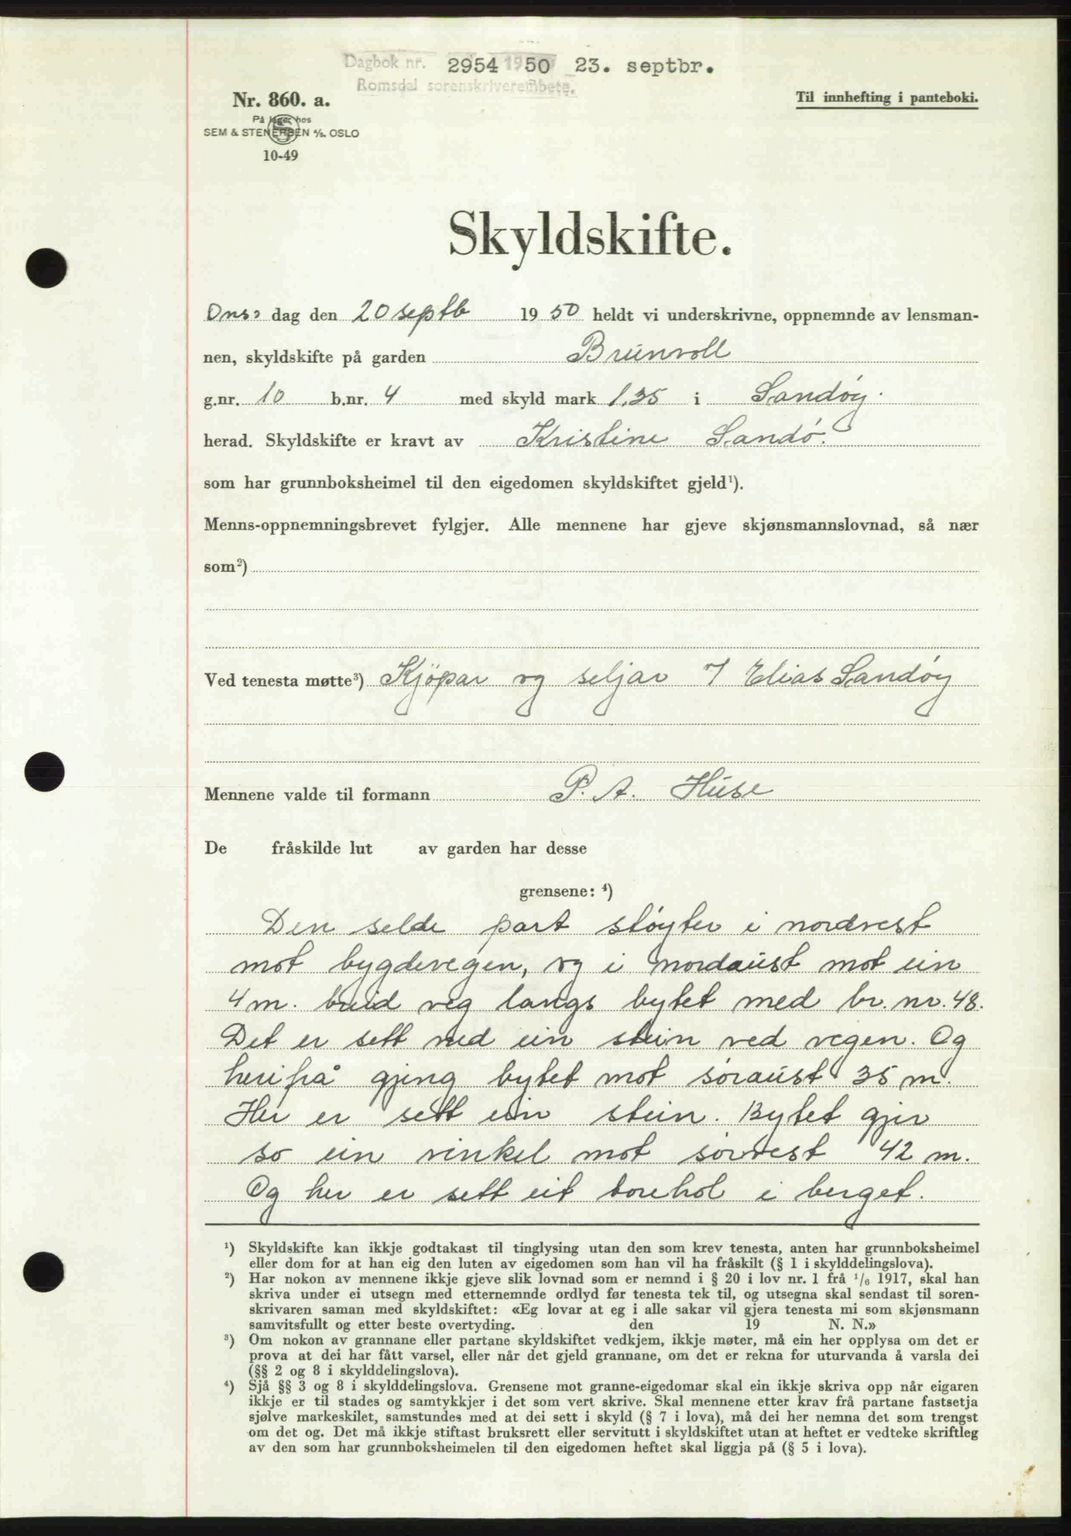 Dagbok nr. 2954 1950 23. septbr.
Romsdal sorenskriverembete.
Nr. 860. a.
På lager hos
SEM & STENERSEN A/S. OSLO
10-49
Til innhefting i panteboki.
Skyldskifte.
Ons- dag den 20 septb 1950 heldt vi underskrivne, oppnemnde av lensman-
nen, skyldskifte på garden Brunvoll
g.nr. 10 b.nr. 4 med skyld mark 1,35 i Sandøy.
herad. Skyldskifte er kravt av Kristine Sandø.
som har grunnboksheimel til den eigedomen skyldskiftet gjeld¹).
Menns-oppnemningsbrevet fylgjer. Alle mennene har gjeve skjønsmannslovnad, så nær
som²)
Ved tenesta møtte³) Kjöpar og seljar v/ Elias Sandöy
Mennene valde til formann P. A. Huse
De fråskilde lut av garden har desse
grensene: ⁴)
Den selde part støyter i nordvest
mot bygdevegen, og i nordaust mot ein
4 m. breid veg langs bytet med br. nr. 48.
Det er sett ned ein stein ved vegen. Og
herifrå gjeng bytet mot søraust 35 m.
Her er sett ein stein. Bytet gjer
so ein vinkel mot sørvest 42 m.
Og her er sett eit borehol i berget.
¹) Skyldskifte kan ikkje godtakast til tinglysing utan den som krev tenesta, anten har grunnboksheimel
eller dom for at han eig den luten av eigedomen som han vil ha fråskilt (§ 1 i skylddelingslova).
²) Har nokon av mennene ikkje gjeve slik lovnad som er nemnd i § 20 i lov nr. 1 frå 1/6 1917, skal han
skriva under ei utsegn med etternemnde ordlyd før tenesta tek til, og utsegna skal sendast til soren-
skrivaren saman med skyldskiftet: «Eg lovar at eg i alle sakar vil gjera tenesta mi som skjønsmann
samvitsfullt og etter beste overtyding. den 19 N. N.»
³) Om nokon av grannane eller partane skyldskiftet vedkjem, ikkje møter, må ein her opplysa om det er
prova at dei har fått varsel, eller når det gjeld grannane, om det er rekna for uturvanda å varsla dei
(§§ 2 og 8 i skylddelingslova).
⁴) Sjå §§ 3 og 8 i skylddelingslova. Grensene mot granne-eigedomar skal ein ikkje skriva opp når eigaren
ikkje er til stades og samtykkjer i det som vert skrive. Skal mennene etter krav frå partane fastsetja
sjølve markeskilet, samstundes med at dei sett i skyld (§ 7 i lova), må dei her nemna det som trengst
om det og. Det må ikkje stiftast bruksrett eller servitutt i skyldskiftet utan at heftet er vedteke skriftleg
av den som har grunnboksheimelen til den eigedomen heftet skal liggja på (§ 5 i lova).